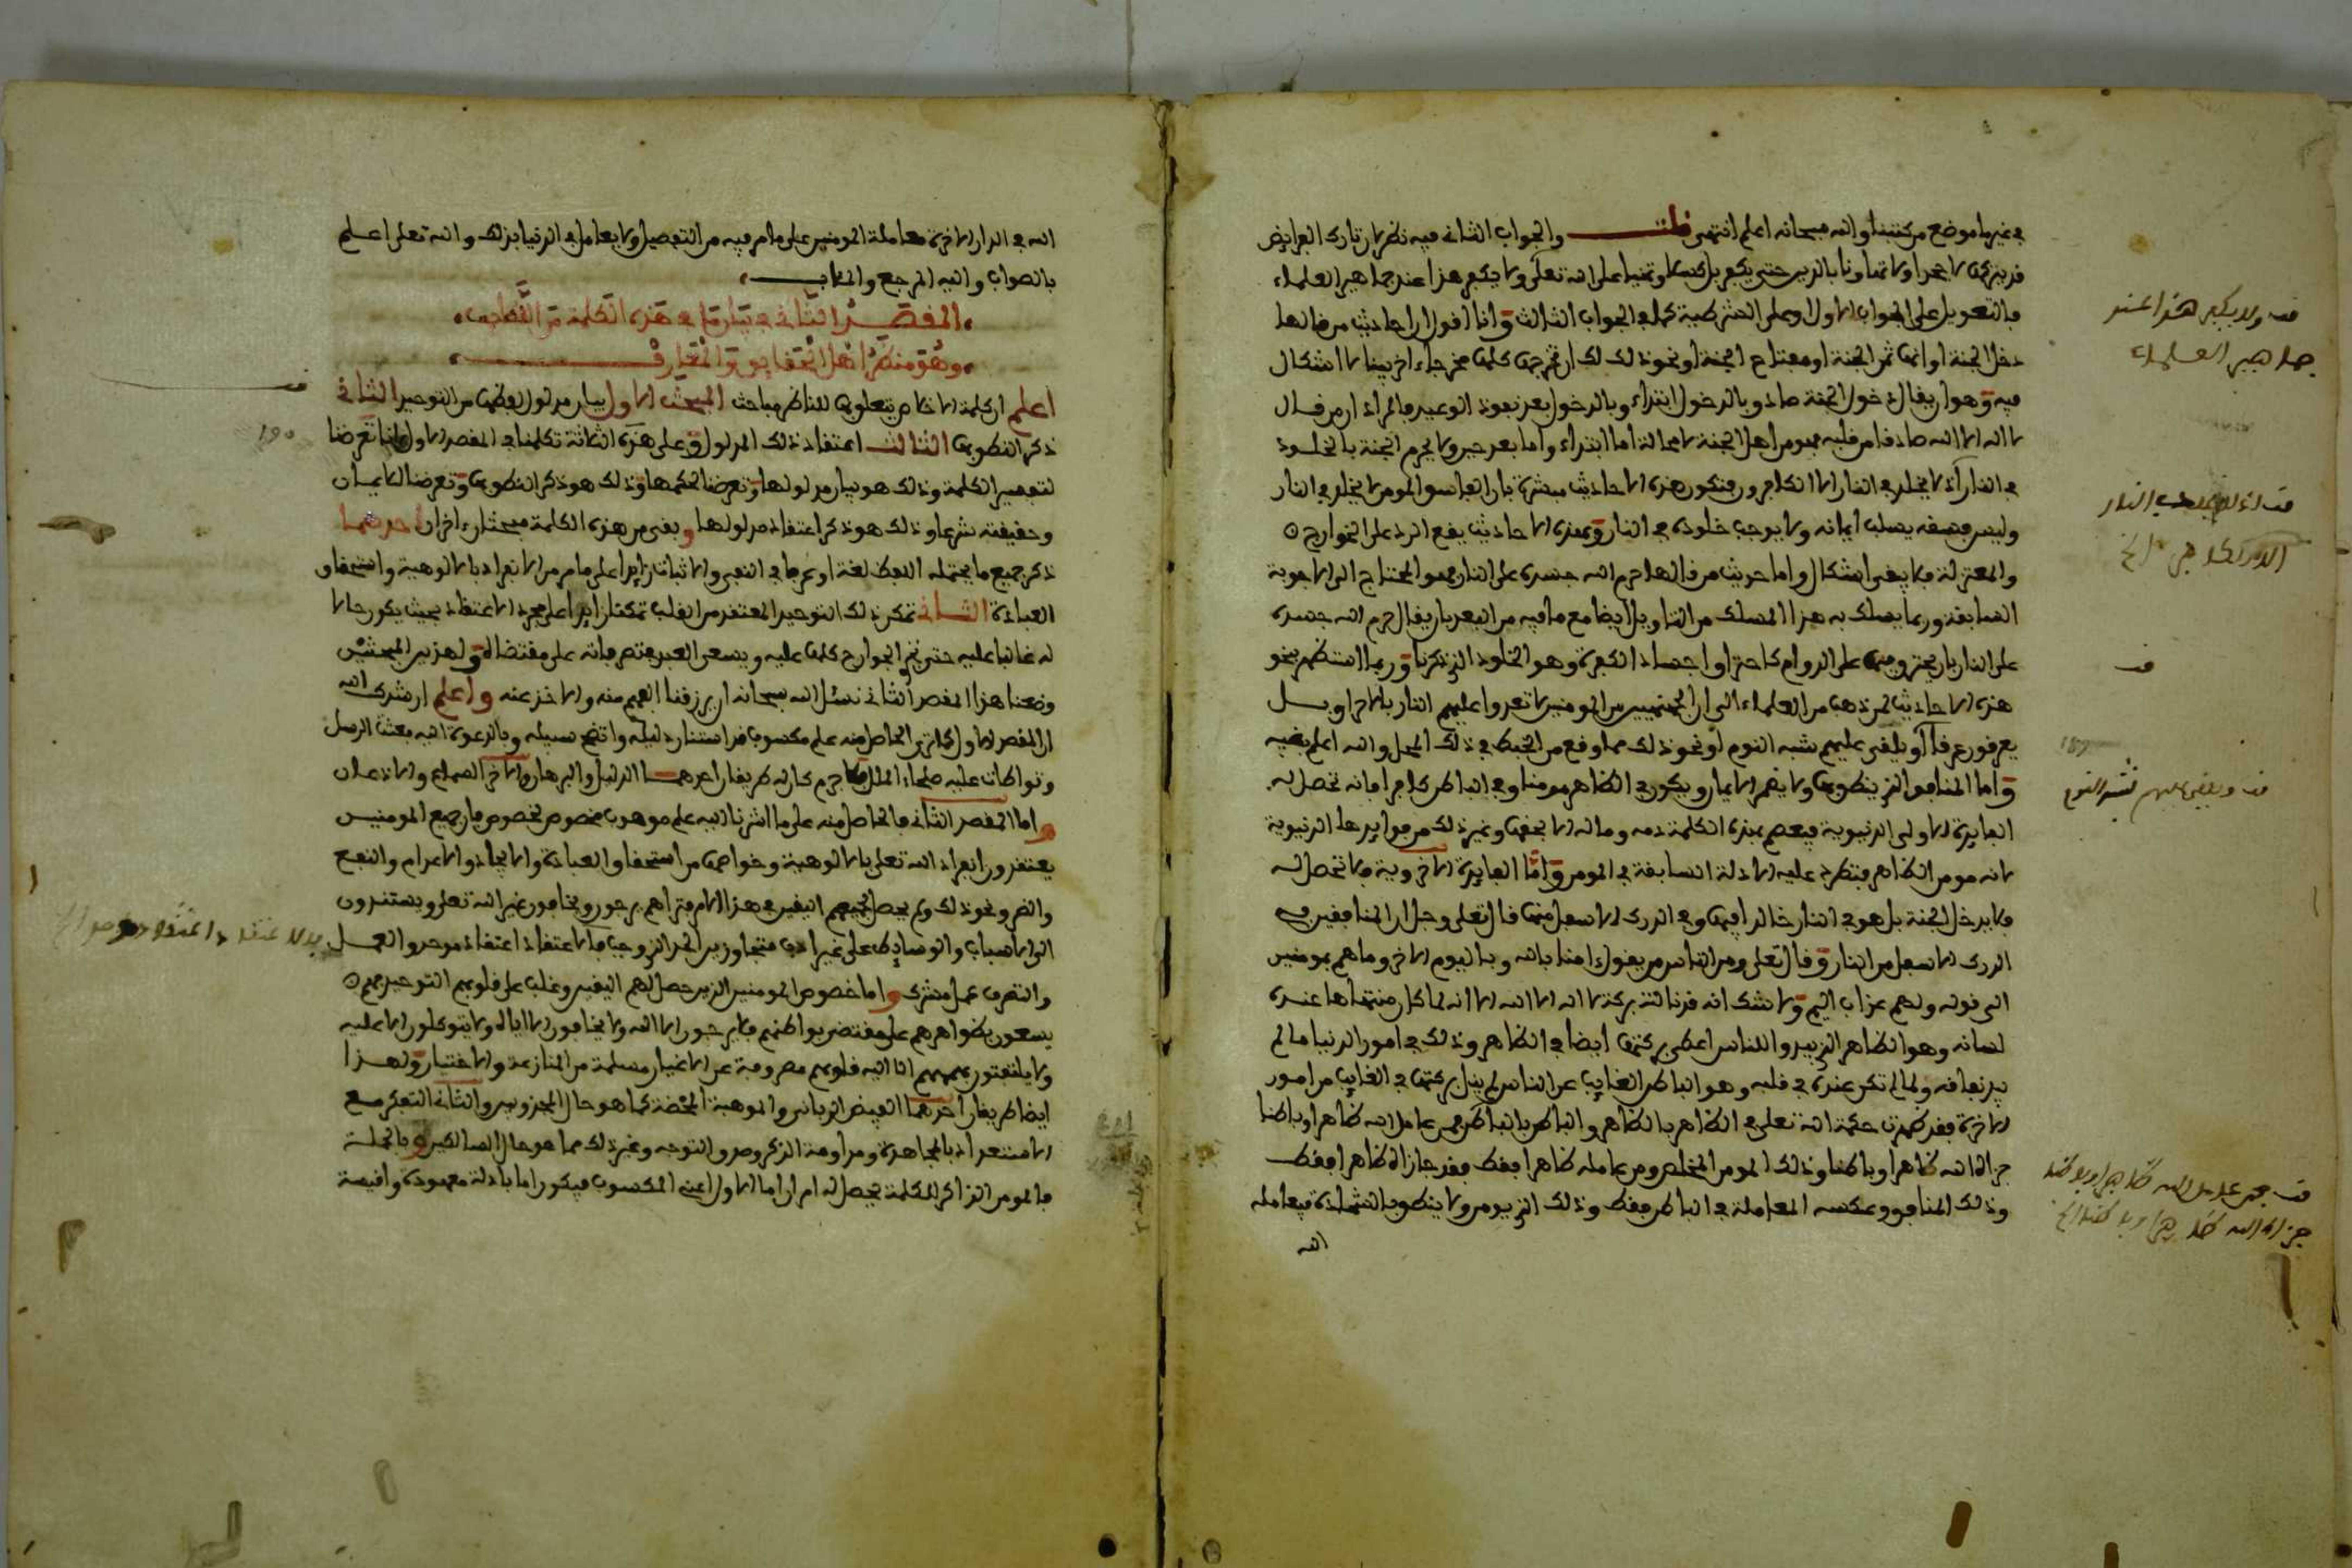 في غير ما موضع من كتبنا والله سبحانه اعلم انتهى قلت والجواب الثاني فيه نظر لان تارك الفرايض
قد يتركها لا جحدا ولا تهاونا بالدين حتى يكفر بل كسلا وتمنيا على الله تعلى ولا يكفر هذا عند جماهير العلماء
فالتعويل على الجواب الاول او على الشرطية كما في الجواب الثالث وانا اقول ان احاديث من قالها
دخل الجنة او انها ثمن الجنة او مفتاح الجنة او نحو ذلك لك ان تخرجها كلها مخرجا اخر بينا لا اشكال
فيه وهو ان يقال دخول الجنة صادق بالدخول ابتداء وبالدخول بعد نفوذ الوعيد فالمراد ان من قال
لا اله الا الله صادقا من قلبه فهو من اهل الجنة لا محالة اما ابتداء واما بعد حين ولا يحرم الجنة بالخلود
في النار اذ لا يخلد في النار الا الكافرون فتكون هذه الاحاديث مبشرة بان الفاسق المومن لا يخلد في النار
وليس فسقه يسلب ايمانه ولا يوجب خلوده في النار وبهذه الاحاديث يقع الرد على الخوارج
والمعتزلة فلا يبقى اشكال واما حديث من قالها حرم الله جسده على النار فهو المحتاج الى الاجوبة
السابقة وربما يسلك به هذا المسلك من التاويل ايضا مع ما فيه من البعد بان يقال حرم الله جسده
على النار بان يحترق فيها على الدوام كاحتراق اجساد الكفرة وهو الخلود الذي ذكرنا وربما استظهر بنحو
هذه الاحاديث لمن ذهب من العلماء الى ان الجهنميين من المومنين لا تعدوا عليهم النار بالاحراق بل
يعرقون عرقا او يلقى عليهم شبه النوم او نحو ذلك مما وقع من الخبط في ذلك المحل والله اعلم بغيبه
واما المنافق الذي ينطق بها ولا يضمر الايمان ويكون في الظاهر مومنا وفي الباطن كافرا فانه تحصل له
الفايدة الاولى الدنيوية فيعصم بهذه الكلمة دمه وماله الا بحقها وغير ذلك من فوايدها الدنيوية
لانه مومن الظاهر فتطرد عليه الادلة السابقة في المومن واما الفايدة الاخروية فلا تحصل له
فلا يدخل الجنة بل هو في النار خالدا فيها وفي الدرك الاسفل منها قال تعلى وجل ان المنافقين في
الدرك الاسفل من النار وقال تعلى ومن الناس من يقول امنا بالله وباليوم الاخر وما هم بمومنين
الى قوله ولهم عذاب اليم ولا شك انه قد نالته بركة لا اله الا الله الا انه لما كان منتهاها عنده
لسانه وهو الظاهر الذي يبدو للناس اعطي بركتها ايضا في الظاهر وذلك في امور الدنيا ما لم
يبد نفاقه ولما لم تكن عنده في قلبه وهو الباطن الغايب عن الناس لم ينل بركتها في الغايب من امور
الاخرة فقد ظهرت حكمة الله تعلى في الظاهر بالظاهر والباطن بالباطن فمن عامل الله ظاهرا وباطنا
جزاه الله ظاهرا وباطنا وذلك المومن المخلص ومن عامله ظاهرا فقط فقد جازاه ظاهرا فقط
وذلك المنافق وعكسه المعاملة في الباطن فقط وذلك الذي يومن ولا ينطق بالشهادة فيعامله
الله
قف ولا يكفر هذا عند
جماهير العلماء
قف اذ لا يخلد في النار
الا الكافرون الخ
قف
قف ويلقى عليهم شبه النوم
قف فمن عامل الله ظاهرا وباطنا
جزاه الله ظاهرا وباطنا الخ
الله في الدار الاخرة معاملة المومنين على ما مر فيه من التفصيل ولا يعامل في الدنيا بذلك والله تعلى اعلم
بالصواب واليه المرجع والمئاب
المقصد الثاني في بيان ما في هذه الكلمة من اللطايف
وهو منظر اهل الحقايق والمعارف
اعلم ان كلمة الاخلاص يتعلق بها للناظر مباحث المبحث الاول بيان مدلول لفظها من التوحيد الثاني
ذكر النطق بها الثالث اعتقاد ذلك المدلول وعلى هذه الثلاثة تكلمنا في المقصد الاول فانا تعرضنا
لتفسير الكلمة وذلك هو بيان مدلولها وتعرضنا لحكمها وذلك هو ذكر النطق بها وتعرضنا للايمان
وحقيقته شرعا وذلك هو ذكر اعتقاد مدلولها وبقي من هذه الكلمة مبحثان اخران احدهما
ذكر جميع ما يحتمله اللفظ لغة او عرفا في النفي والاثبات زايدا على ما مر من الانفراد بالالوهية واستحقاق
العبادة الثاني تمكن ذلك التوحيد المعتقد من القلب تمكنا زايدا على مجرد الاعتقاد بحيث يكون حالا
له غالبا عليه حتى تجري الجوارح كلها عليه ويسعى العبد بتصرفاته على مقتضاه ولهذين المبحثين
وضعنا هذا المقصد الثاني نسئل الله سبحانه ان يرزقنا الفهم منه والاخذ عنه واعلم ارشدك الله
ان المقصد الاول كان الحاصل منه علم مكسوب قد استنار دليله واتضح سبيله وبالدعوة اليه بعث الرسل
وتواطات عليه صلحاء الملل فلا جرم كان له طريقان احدهما الدليل والبرهان والاخر السماع والاذعان
واما المقصد الثاني فالحاصل منه على ما اشرنا اليه علم موهوب مخصوص بخصوص فان جميع المومنين
يعتقدون انفراد الله تعلى بالالوهية وخواصها من استحقاق العبادة والايجاد والاعدام والنفع
والضر ونحو ذلك ولم يحصل لجميعهم اليقين في هذا الامر فتراهم يرجون ويخافون غير الله تعلى ويستندون
الى الاسباب والوسايط على غير ادب متجاوزين الحد الذي وجب فالاعتقاد اعتقاد موحد والعمل
والتصرف عمل مشرك واما خصوص المومنين الذين حصل لهم اليقين وغلب على قلوبهم التوحيد فهم
يسعون بظواهرهم على مقتضى بواطنهم فلا يرجون الا الله ولا يخافون الا اياه ولا يتوكلون الا عليه
ولا يلتفتون بهممهم الا اليه قلوبهم مصروفة عن الاغيار مسلمة من المنازعة والاختيار ولهذا
ايضا طريقان احدهما الفيض الرباني والموهبة المحضة كما هو حال المجذوبين والثاني التفكر مع
الاستعداد بالمجاهدة ومداومة الذكر وصدق التوجه وغير ذلك مما هو حال السالكين وبالجملة
فالمومن الذاكر للكلمة يحصل له امران اما الاول اعني المكسوب فيكون اما بادلة معهودة واقيسة
قف
190